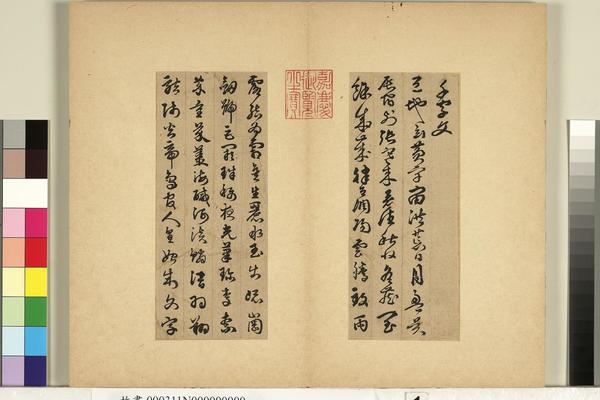 千字文
天地玄黃宇宙洪荒日月盈昃
辰宿列張寒來暑往秋收冬藏閏
餘成歲律呂調陽雲騰致雨
嘉慶御覽之寶
露結為霜金生麗水玉出崐崗
劍號巨闕珠稱夜光菓珍李柰
菜重芥薑海鹹河淡鱗潛羽翔
龍師火帝鳥官人皇始制文字
000311N000000000